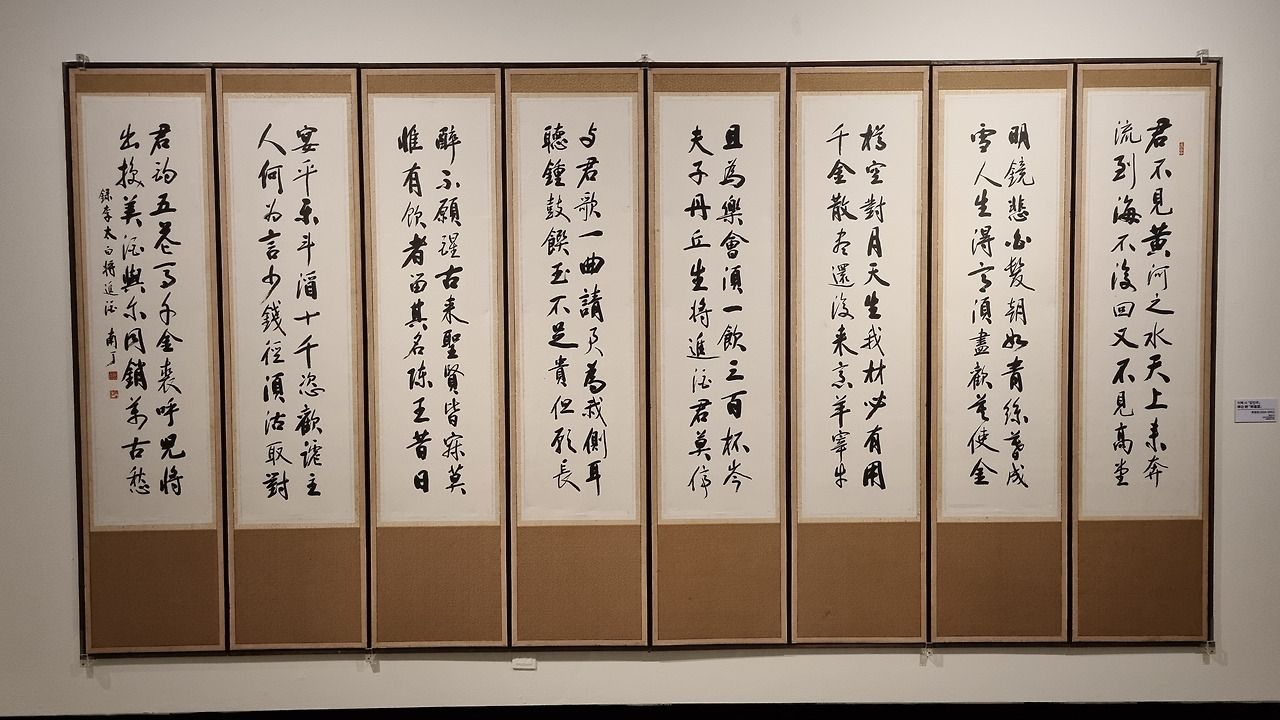 君不見黃河之水天上来奔
流到海不復回又不見高堂
明鏡悲白髮朝如青絲暮成
雪人生得意須盡歡莫使金
樽空對月天生我材必有用
千金散盡還復来烹羊宰牛
且為樂會須一飲三百杯岑
夫子丹丘生將進酒君莫停
与君歌一曲請君為我側耳
聽鍾鼓饌玉不足貴但願長
醉不願醒古来聖賢皆寂莫
惟有飲者留其名陳王昔日
宴平乐斗酒十千恣歡謔主
人何为言少錢徑須沽取對
君酌五花馬千金裘呼兒將
出換美酒與尔同銷萬古愁
錄李太白將進酒 南丁